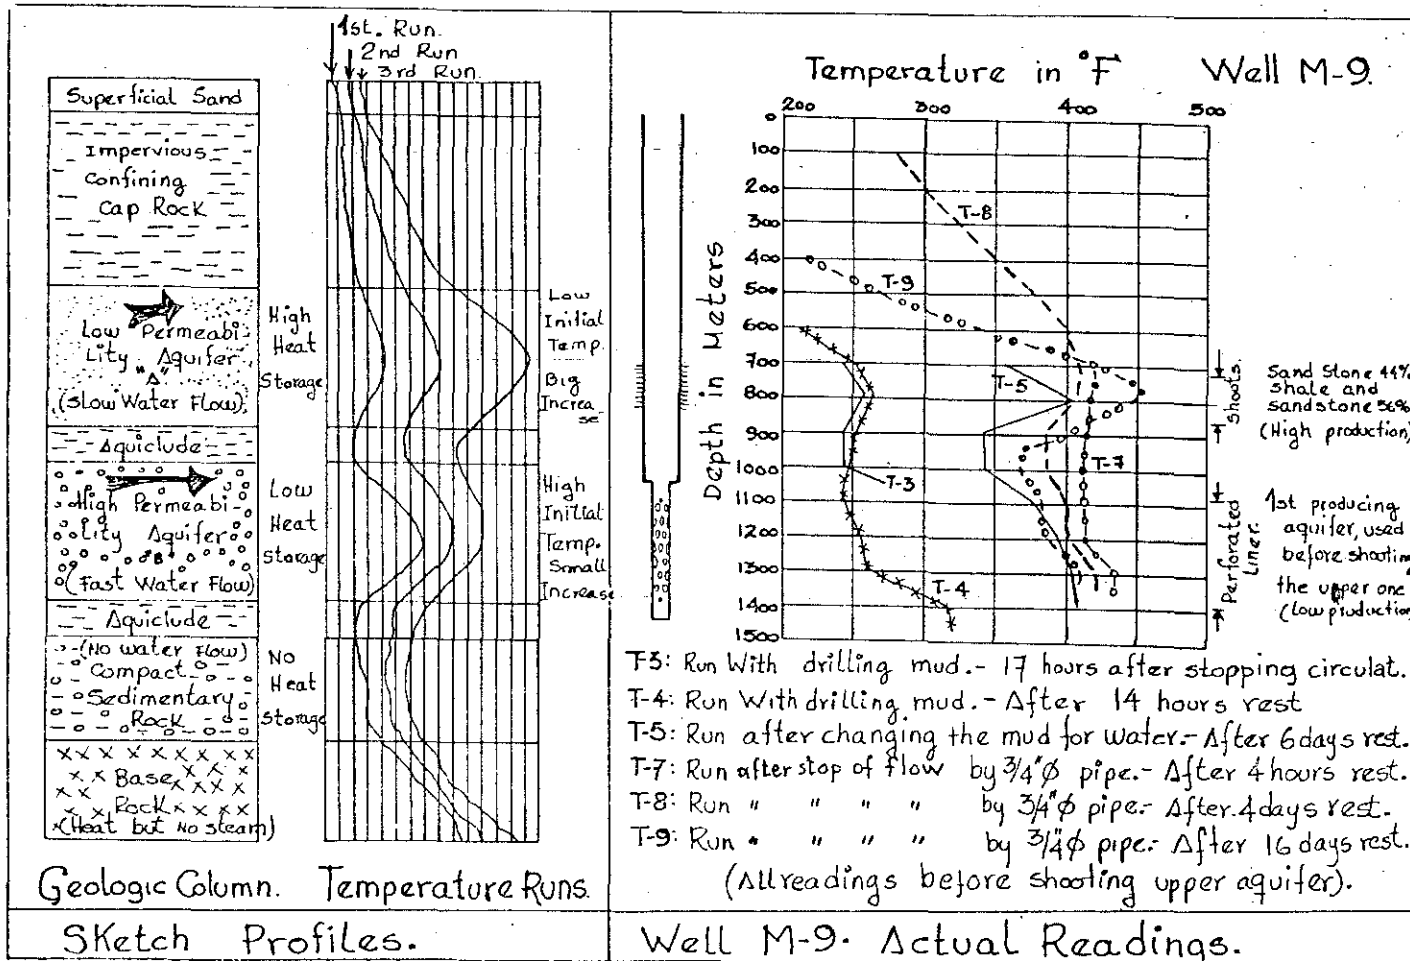 1st. Run.
2nd Run
3rd Run.
Superficial Sand
Impervious
Confining
Cap Rock
Low Permeabi-
lity Aquifer
"A"
(Slow Water Flow)
Aquiclude
High Permeabi-
lity Aquifer
"B"
(Fast Water Flow)
Aquiclude
(No water Flow)
Compact
Sedimentary
Rock
Base
Rock
(Heat but No steam)
High
Heat
Storage
Low
Heat
Storage
No
Heat
Storage
Low
Initial
Temp.
Big
Increa-
se
High
Initial
Temp.
Small
Increase
Geologic Column. Temperature Runs.
Sketch Profiles.
Temperature in °F Well M-9.
200 300 400 500
Depth in Meters
0
100
200
300
400
500
600
700
800
900
1000
1100
1200
1300
1400
1500
T-8
T-9
T-5
T-7
T-3
T-4
Shoots.
Sand Stone 44%
Shale and
sandstone 56%
(High production)
Perforated
Liner.
1st producing
aquifer, used
before shooting
the upper one
(low production
T-3: Run With drilling mud.- 17 hours after stopping circulat.
T-4: Run With drilling mud.- After 14 hours rest
T-5: Run after changing the mud for water.- After 6 days rest.
T-7: Run after stop of flow by 3/4"ϕ pipe.- After 4 hours rest.
T-8: Run " " " " by 3/4"ϕ pipe.- After 4 days rest.
T-9: Run " " " " by 3/4"ϕ pipe.- After 16 days rest.
(All readings before shooting upper aquifer).
Well M-9. Actual Readings.